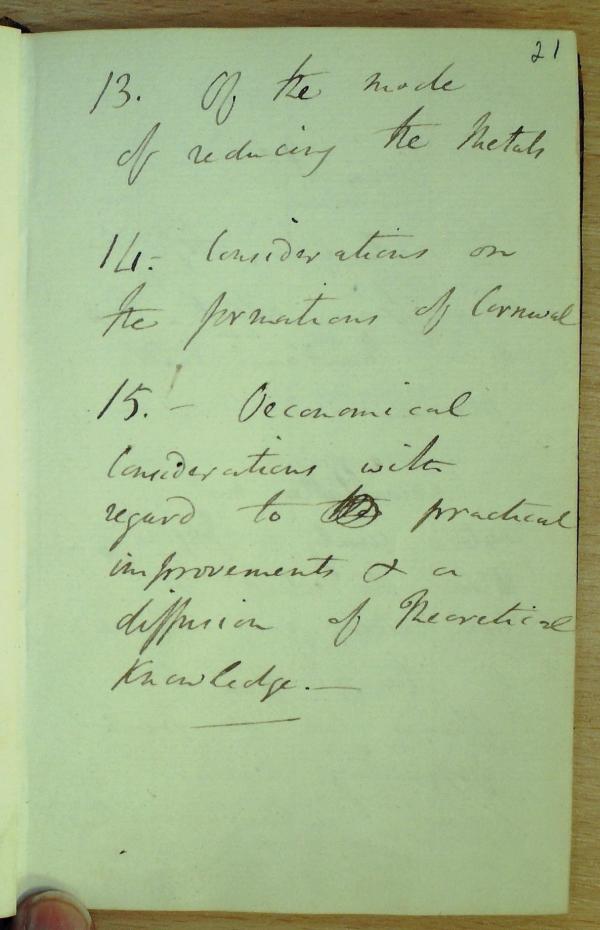 21
13. Of the mode
of reducing the Metals
14.- Considerations on
the formations of Cornwal
15.- Oeconomical
Considerations with
regard to the practical
improvements & a
diffusion of Theoretical
Knowledge.—